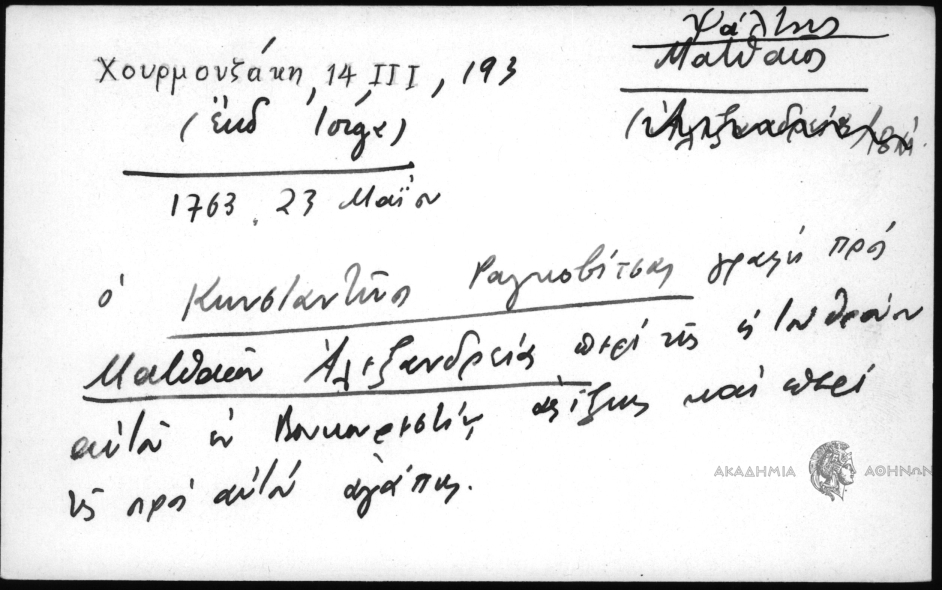 Ψάλτης
Ματθαῖος
Χουρμουζάκη, 14 III, 193
(ἔκδ Ἰόργα)
1763. 23 Μαΐου
ὁ Κωνσταντῖνος Ραγκοβίτσας γράφει πρὸς
Ματθαῖον Ἀλεξανδρείας περὶ τῆς
αὐτοῦ ἐν Βουκουρεστίῳ ἀφίξεως καὶ περὶ
τῆς πρὸς αὐτὸν ἀγάπης.
ΑΚΑΔΗΜΙΑ ΑΘΗΝΩΝ